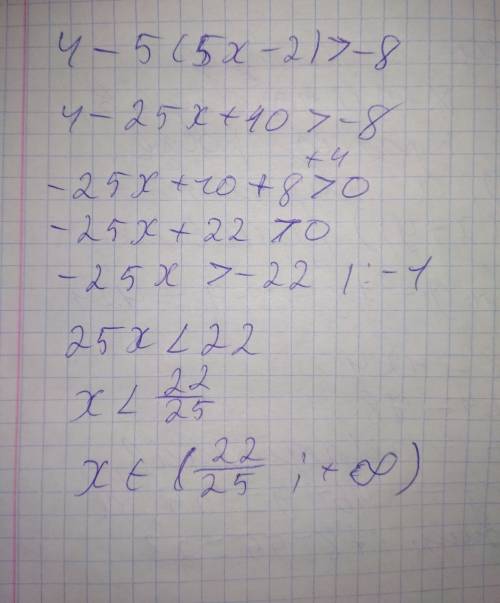 4 - 5 (5x - 2) > -8
4 - 25x + 10 > -8
+4
-25x + 10 + 8 > 0
-25x + 22 > 0
-25x > -22 | : -1
25x < 22
x < 22/25
x ∈ (22/25 ; + ∞)